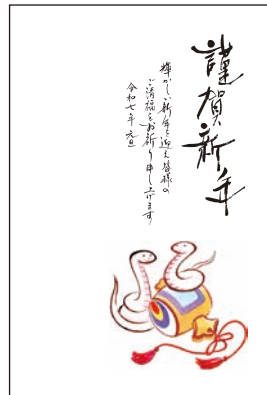 謹賀新年
輝かしい新年を迎え皆様の
ご清福をお祈り申し上げます
令和七年 元旦